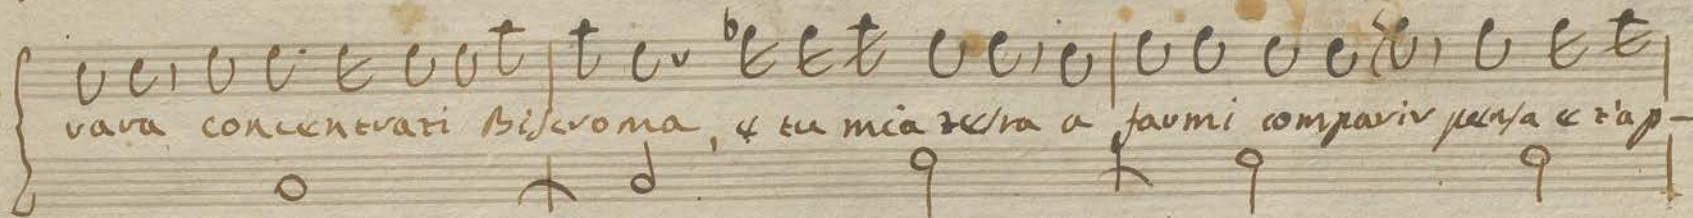 rara concentrati Biscroma, e tu mia testa a farmi comparir pensa e t'ap-